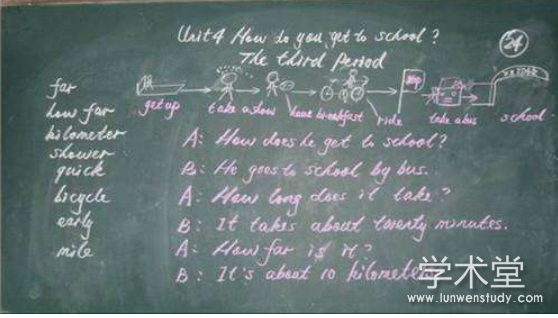 Unit 4 How do you get to school?
The third Period
24
far
how far
kilometer
shower
quick
bicycle
early
mile
get up
take a show
have breakfast
ride
stop
take a bus
school
A: How does he get to school?
B: He goes to school by bus.
A: How long does it take?
B: It takes about twenty minutes.
A: How far is it?
B: It's about 10 kilometers
学术堂
www.lunwenstudy.com